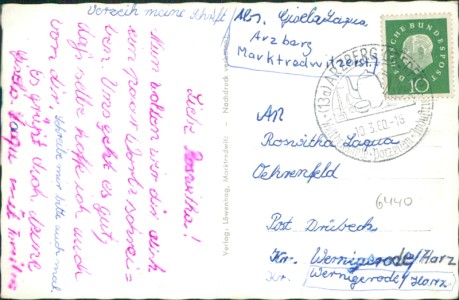 Verzeih meine Schrift
Liebe Roswitha!
Nun wollen wir dir auch
ein paar Worte schrei=
ben. Uns geht es gut,
das selbe hoffe ich auch
von dir. Schreibe mir bitte auch mal
Es grüßt dich deine
Gisela Laqua und Familie
Abs. Gisela Laqua
Arzberg
Marktredwitzerstr.
DEUTSCHE BUNDESPOST
10
(13a) ARZBERG
10.3.60-16
AN
Roswitha Laqua
Oehrenfeld
6440
Post Drübeck
Kr. Wernigerode/Harz
Kr. Wernigerode/Harz
Verlag: Löwenhag, Marktredwitz
Nachdruck